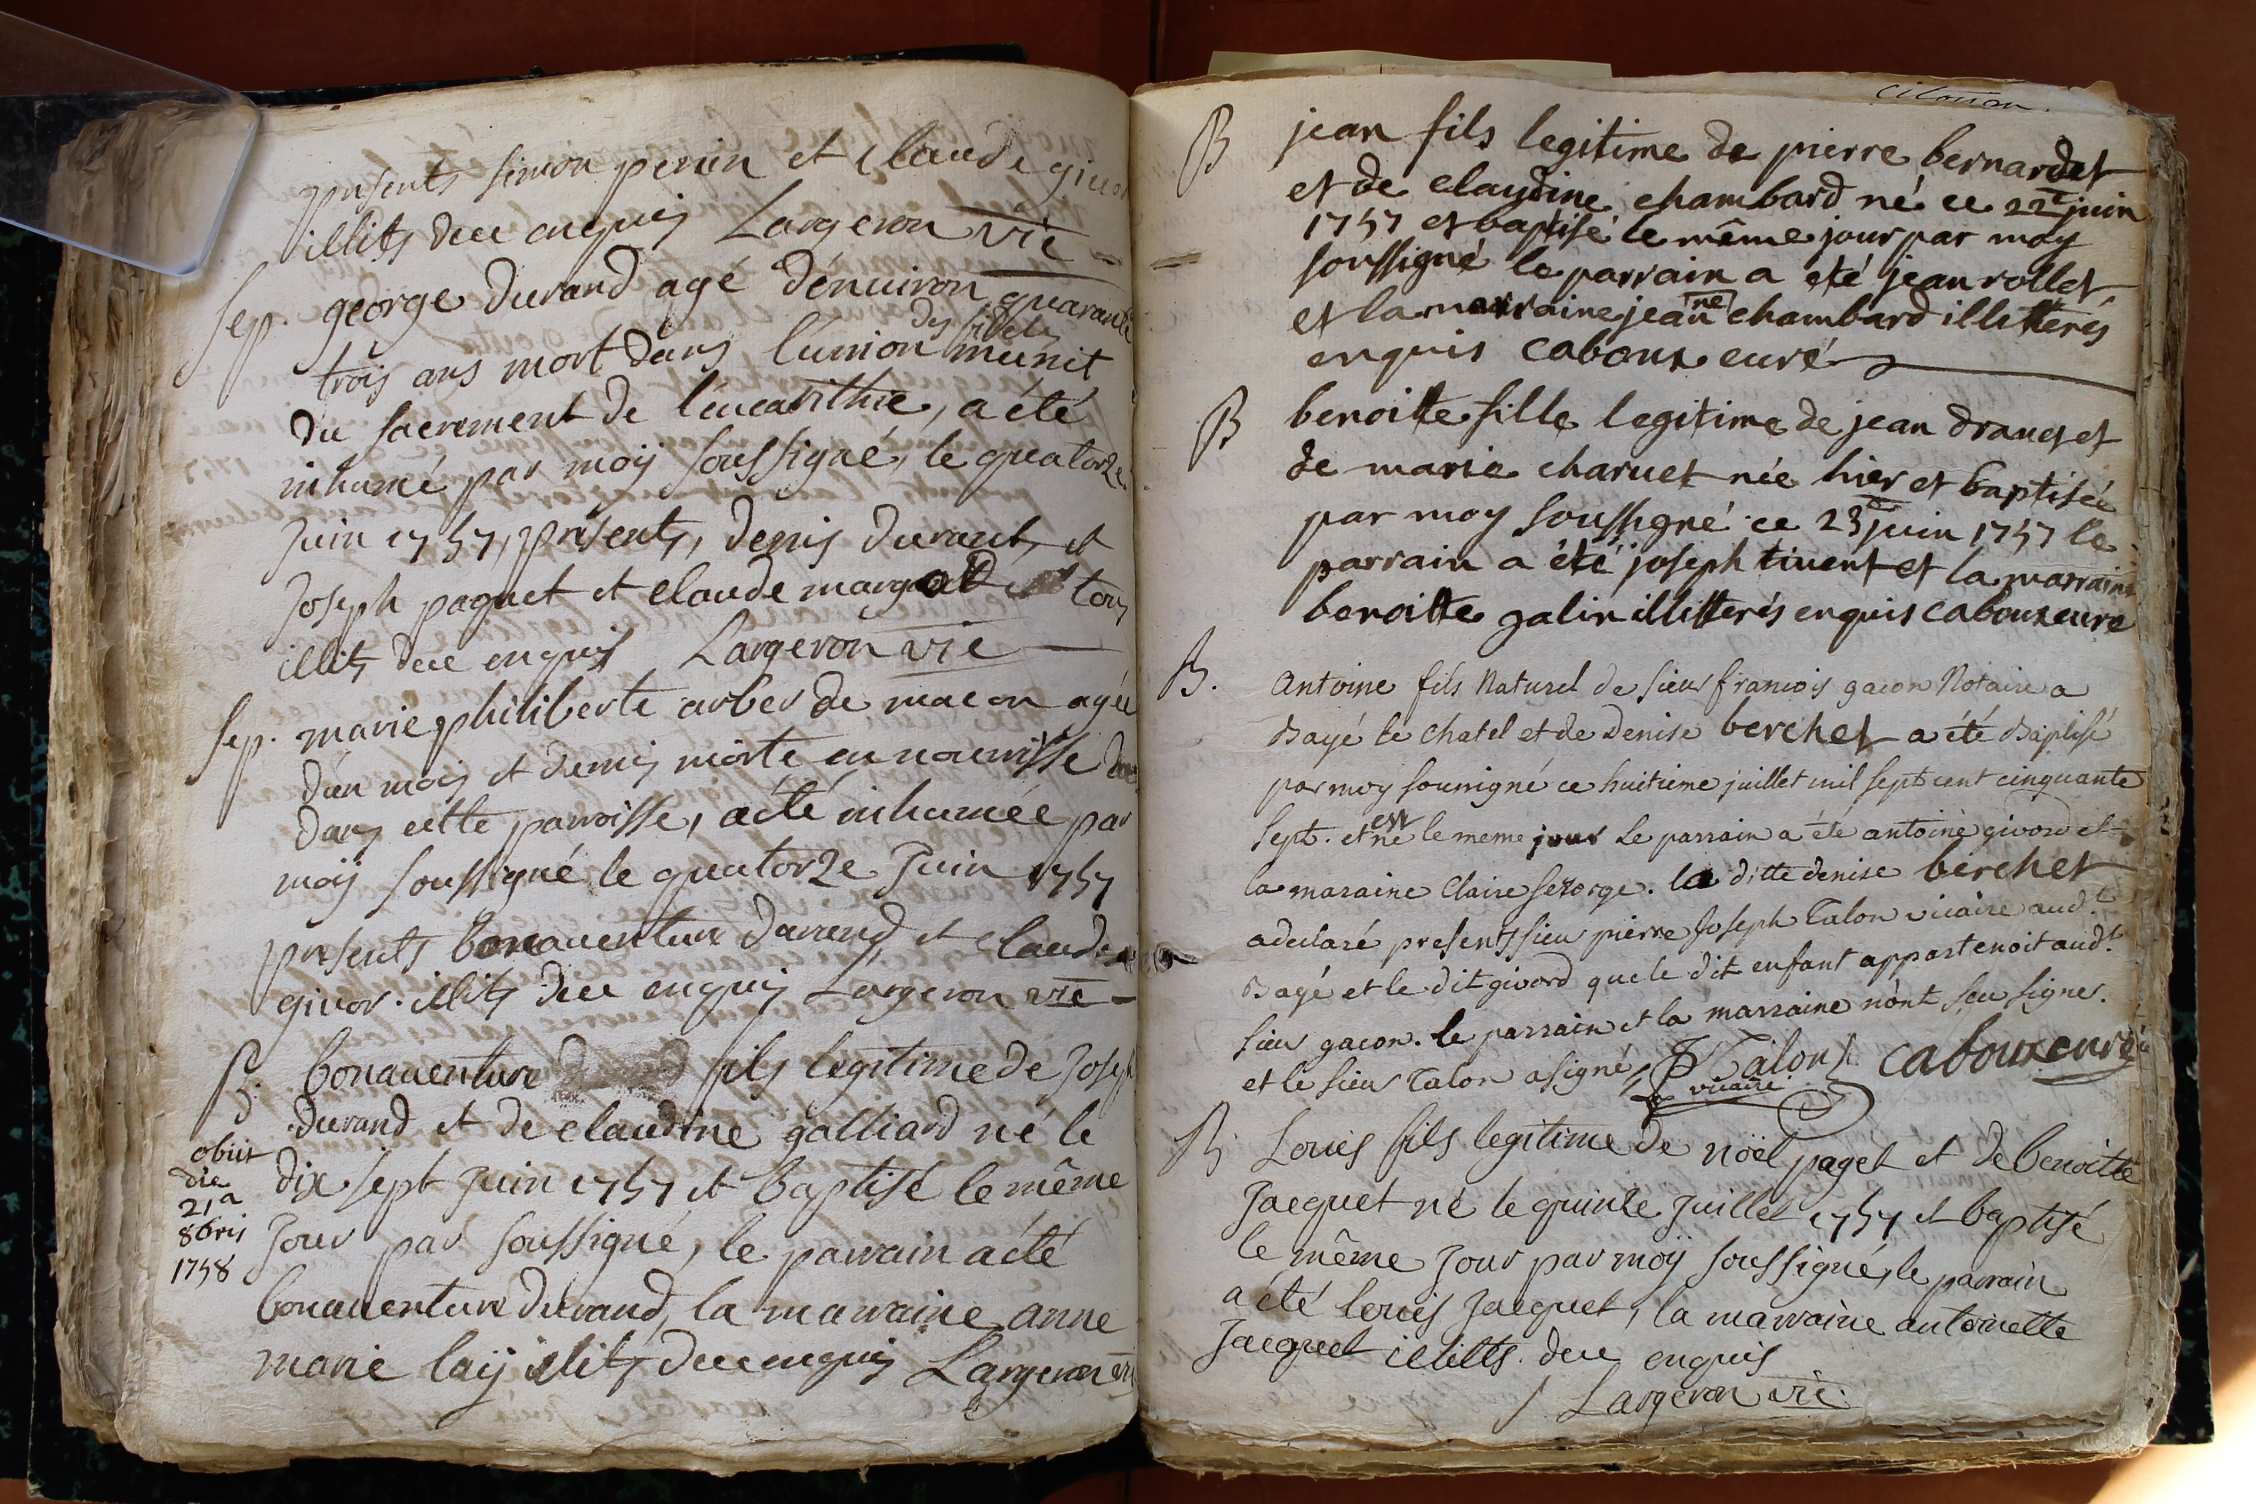 presents simon perrin et claude givor
illits dece enquis Largeron vic
Sep. george durand agé d'enuiron quarante
des fideles
trois ans mort dans l'union munit
du sacrement de l'eucarithie, a été
inhumé par moÿ soussigné, le quatorze
Juin 1757, présents, denis durand, et
Joseph paquet et claude margot tous
illits dece enquis Largeron vic
Sep. marie philiberte arber de macon agée
d'un mois et demis morte en nourrisse
dans cette parroisse, a été inhumée par
moÿ soussigné le quatorze Juin 1757
présents bonauenture durand et claude
givor. illits dece enquis Largeron vic
B. bonauenture fils legitime de Joseph
durand et de claudine galliard né le
obiit
die
21a
8bris
1758
dix sept Juin 1757 et baptisé le même
Jour par soussigné, le parrain a été
bonauenture durand, la marraine anne
marie laÿ illits dece enquis Largeron vic
B jean fils legitime de pierre bernardet
et de claudine chambard né ce 22e juin
1757 et baptisé le même jour par moy
soussigné le parrain a eté jean rollet
et la marraine jeanne chambard illitterés
enquis caboux curé
B benoitte fille legitime de jean dranet
de marie charuet née hier et baptisée
par moy soussigné ce 23e juin 1757 le
parrain a été joseph tiuent et la marraine
benoitte galin illitterés enquis caboux cure
B. Antoine fils Naturel de sieur francois gacon Notaire a
Bagé le chatel et de Denise berchet a été Baptisé
par moy soussigné ce huitieme juillet mil sept cent cinquante
sept. et est né le meme jour Le parrain a été antoine givord et
la maraine Claire Sezorge. la ditte denise berchet
a declaré presents sieur pierre Joseph Talon vicaire aud.t
Bagé et le dit givord que le dit enfant appartenoit aud.t
sieur gacon. le parrain et la marraine n'ont sçu signer.
et le sieur Talon a signé, Talon caboux curé
vicaire
B. Louis fils legitime de nöel paget et de benoitte
Jacquet né le quinze Juillet 1757 et baptisé
le même Jour par moÿ soussigné, le parrain
a été louis Jacquet, la marraine antoinette
Jacquet illitts. dece enquis
Largeron vic.